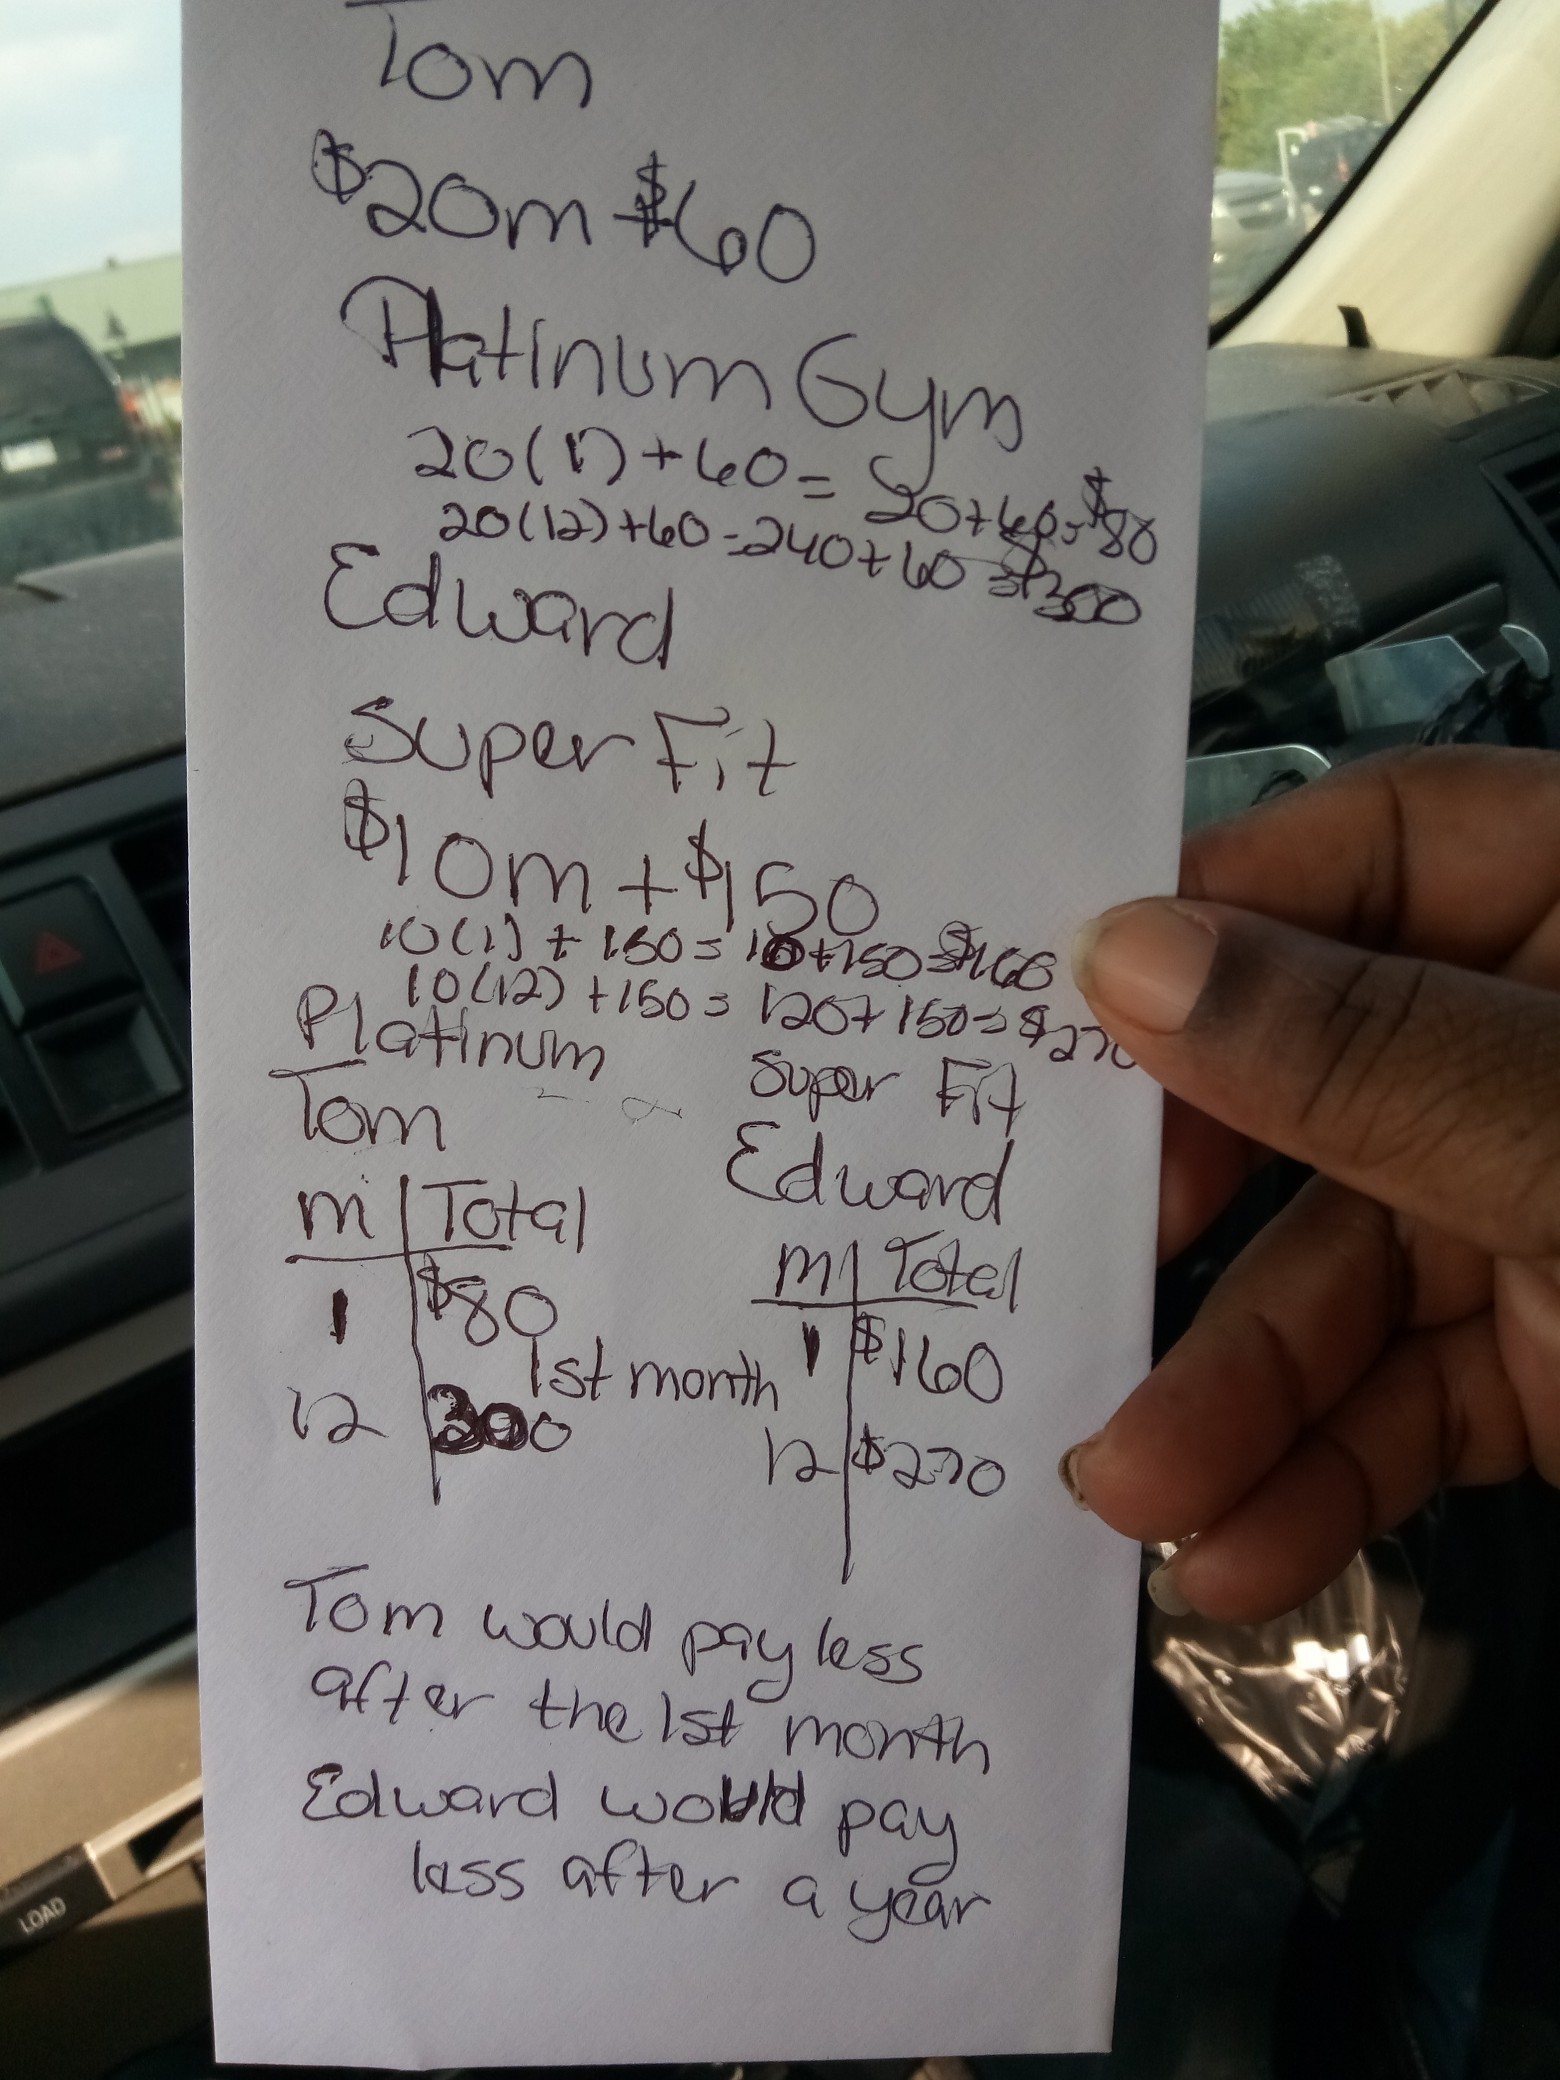 Tom
$20m + $60
Platinum Gym
20(1) + 60 = 20+60=$80
20(12)+60=240+60=$300
Edward
Super Fit
$10m + $150
10(1) + 150 = 10+150=$160
10(12) + 150 = 120+150=$270
Platinum
Super Fit
Tom
Edward
m Total
m Total
1 $80
1st month
1 $160
12 300
12 $270
Tom would pay less
after the 1st month
Edward would pay
less after a year
LOAD